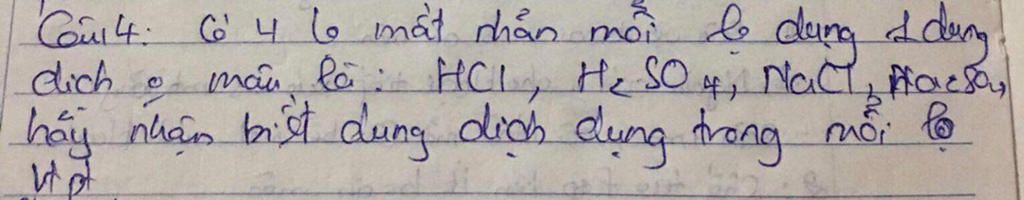 Câu 4: Có 4 lọ mất nhãn mỗi lọ đựng 1 dung
dịch o màu là: HCl, H2SO4, NaCl, Na2SO4,
hãy nhận biết dung dịch đựng trong mỗi lọ
Vt pt